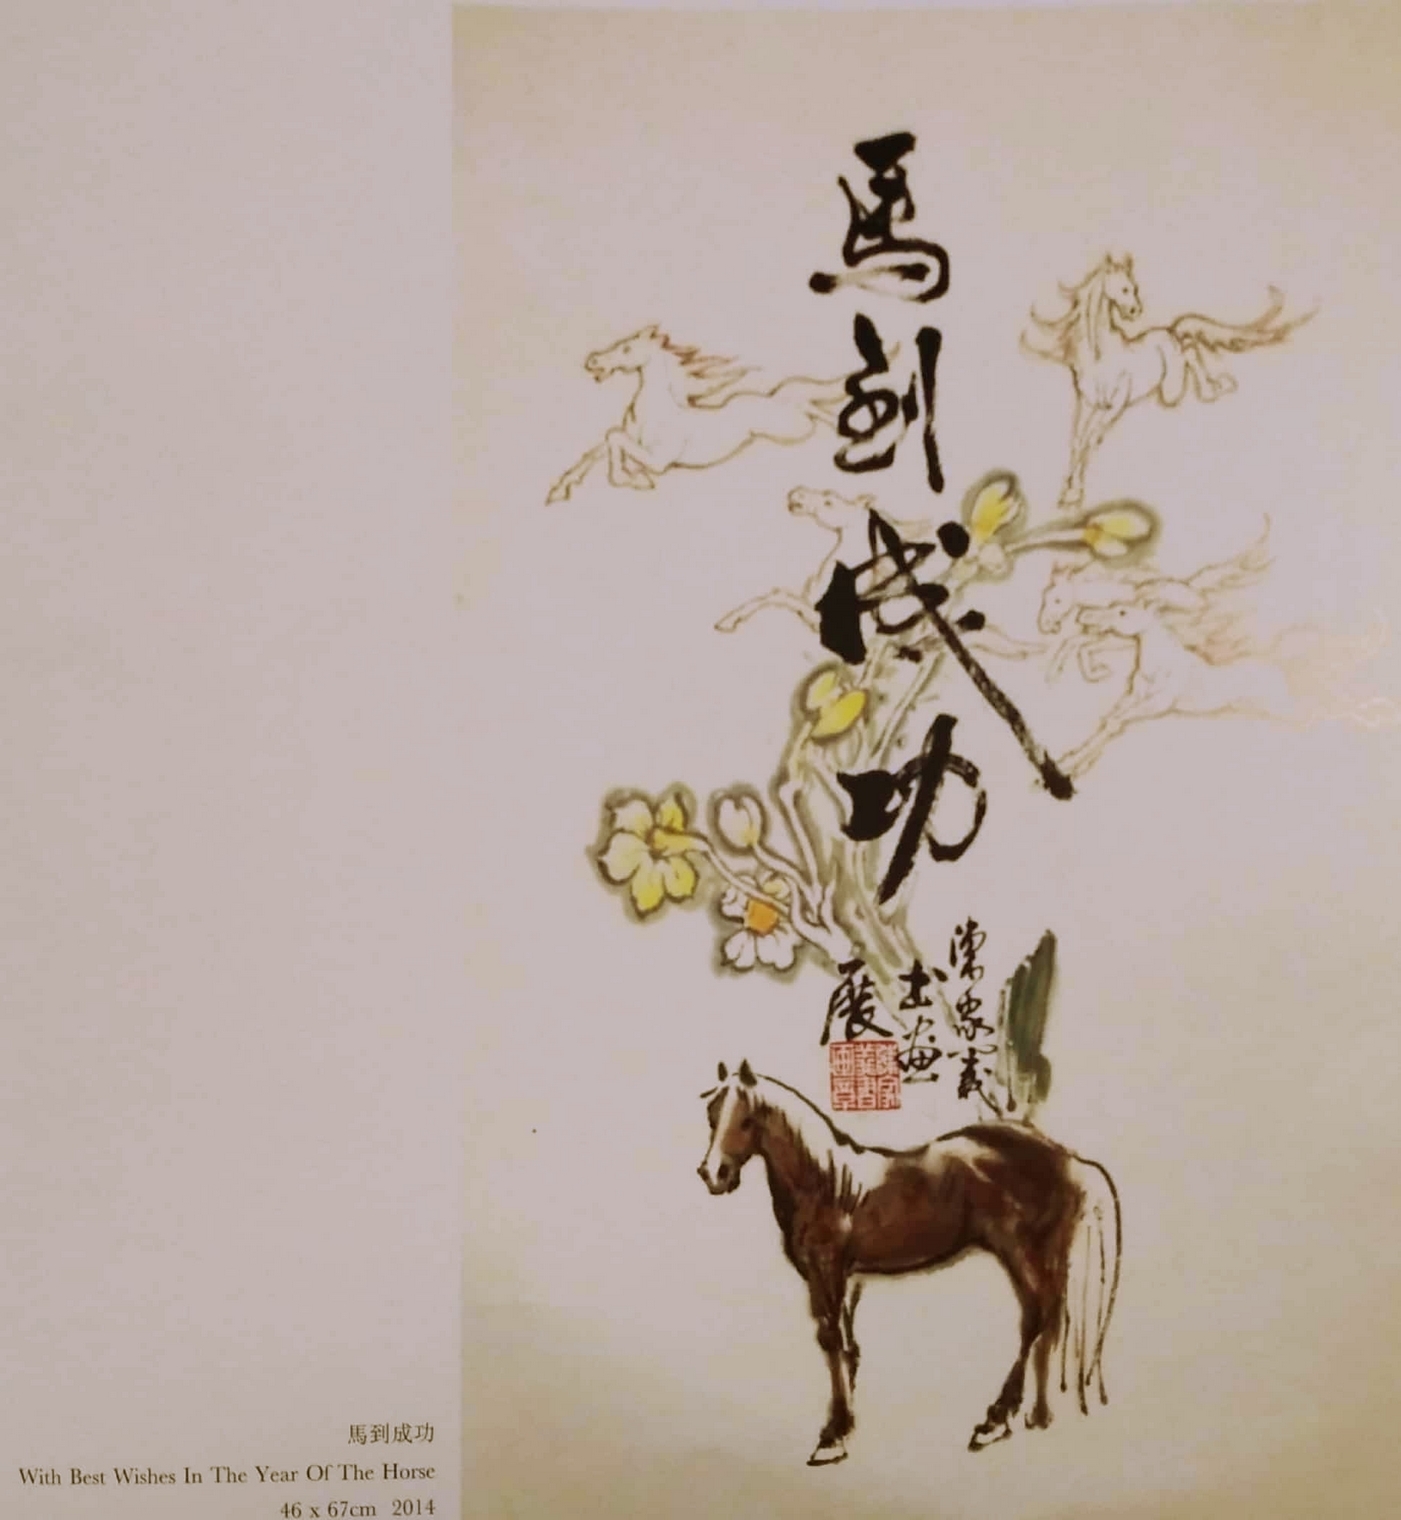 馬到成功
陳家義
書画
展
馬到成功
With Best Wishes In The Year Of The Horse
46 x 67cm 2014